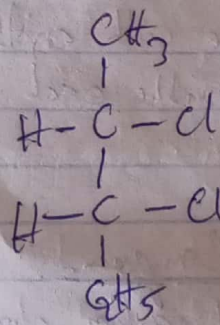 CH3
H-C-Cl
H-C-Cl
C2H5